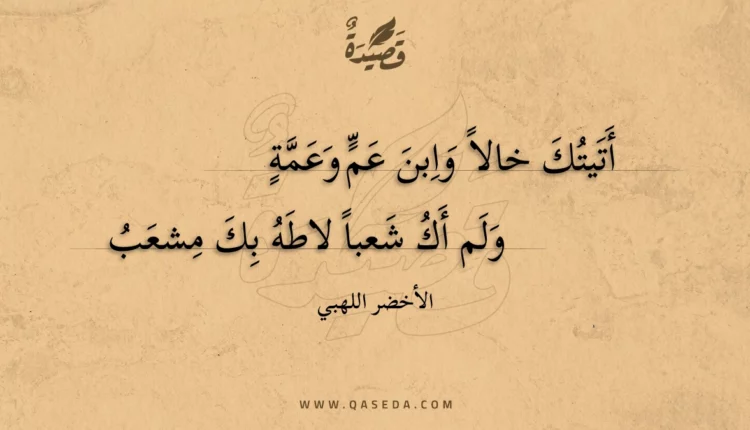 قَصِيْدَةٌ
أَتَيتُكَ خالاً وَاِبنَ عَمٍّ وَعَمَّةٍ
وَلَم أَكُ شَعباً لاطَهُ بِكَ مِشعَبُ
الأخضر اللهبي
WWW.QASEDA.COM